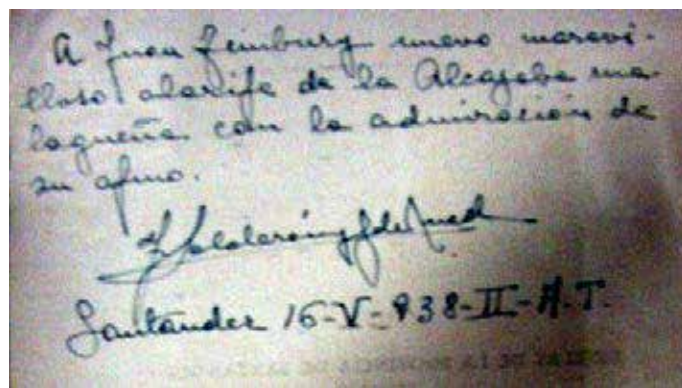 A Juan Zeimburg nuevo maravi-
lloso alarife de la Alcazaba ma-
lagueña con la admiración de
su afmo.
F. Calderón y G. de Rueda
Santander 16-V-938-II-A.T.